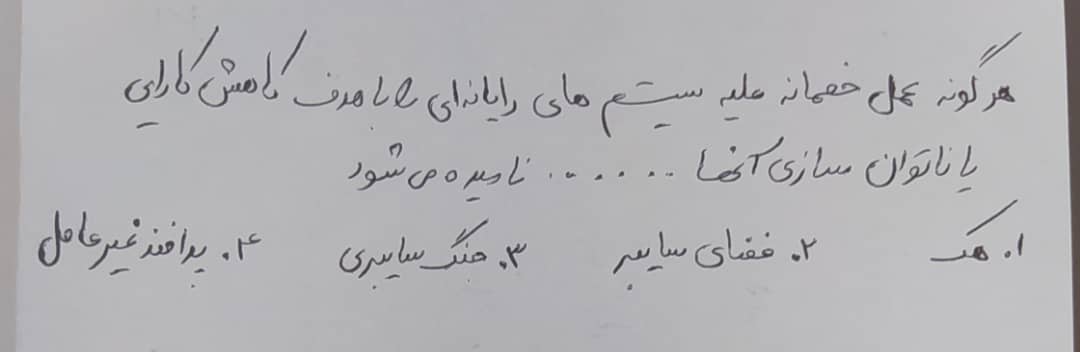 هر گونه عمل خصمانه علیه سیستم های رایانه‌ای را با هدف کاهش کارایی
یا ناتوان سازی آنها ...... نامیده می شود
۱. هک ۲. فضای سایبر ۳. جنگ سایبری ۴. پدافند غیرعامل